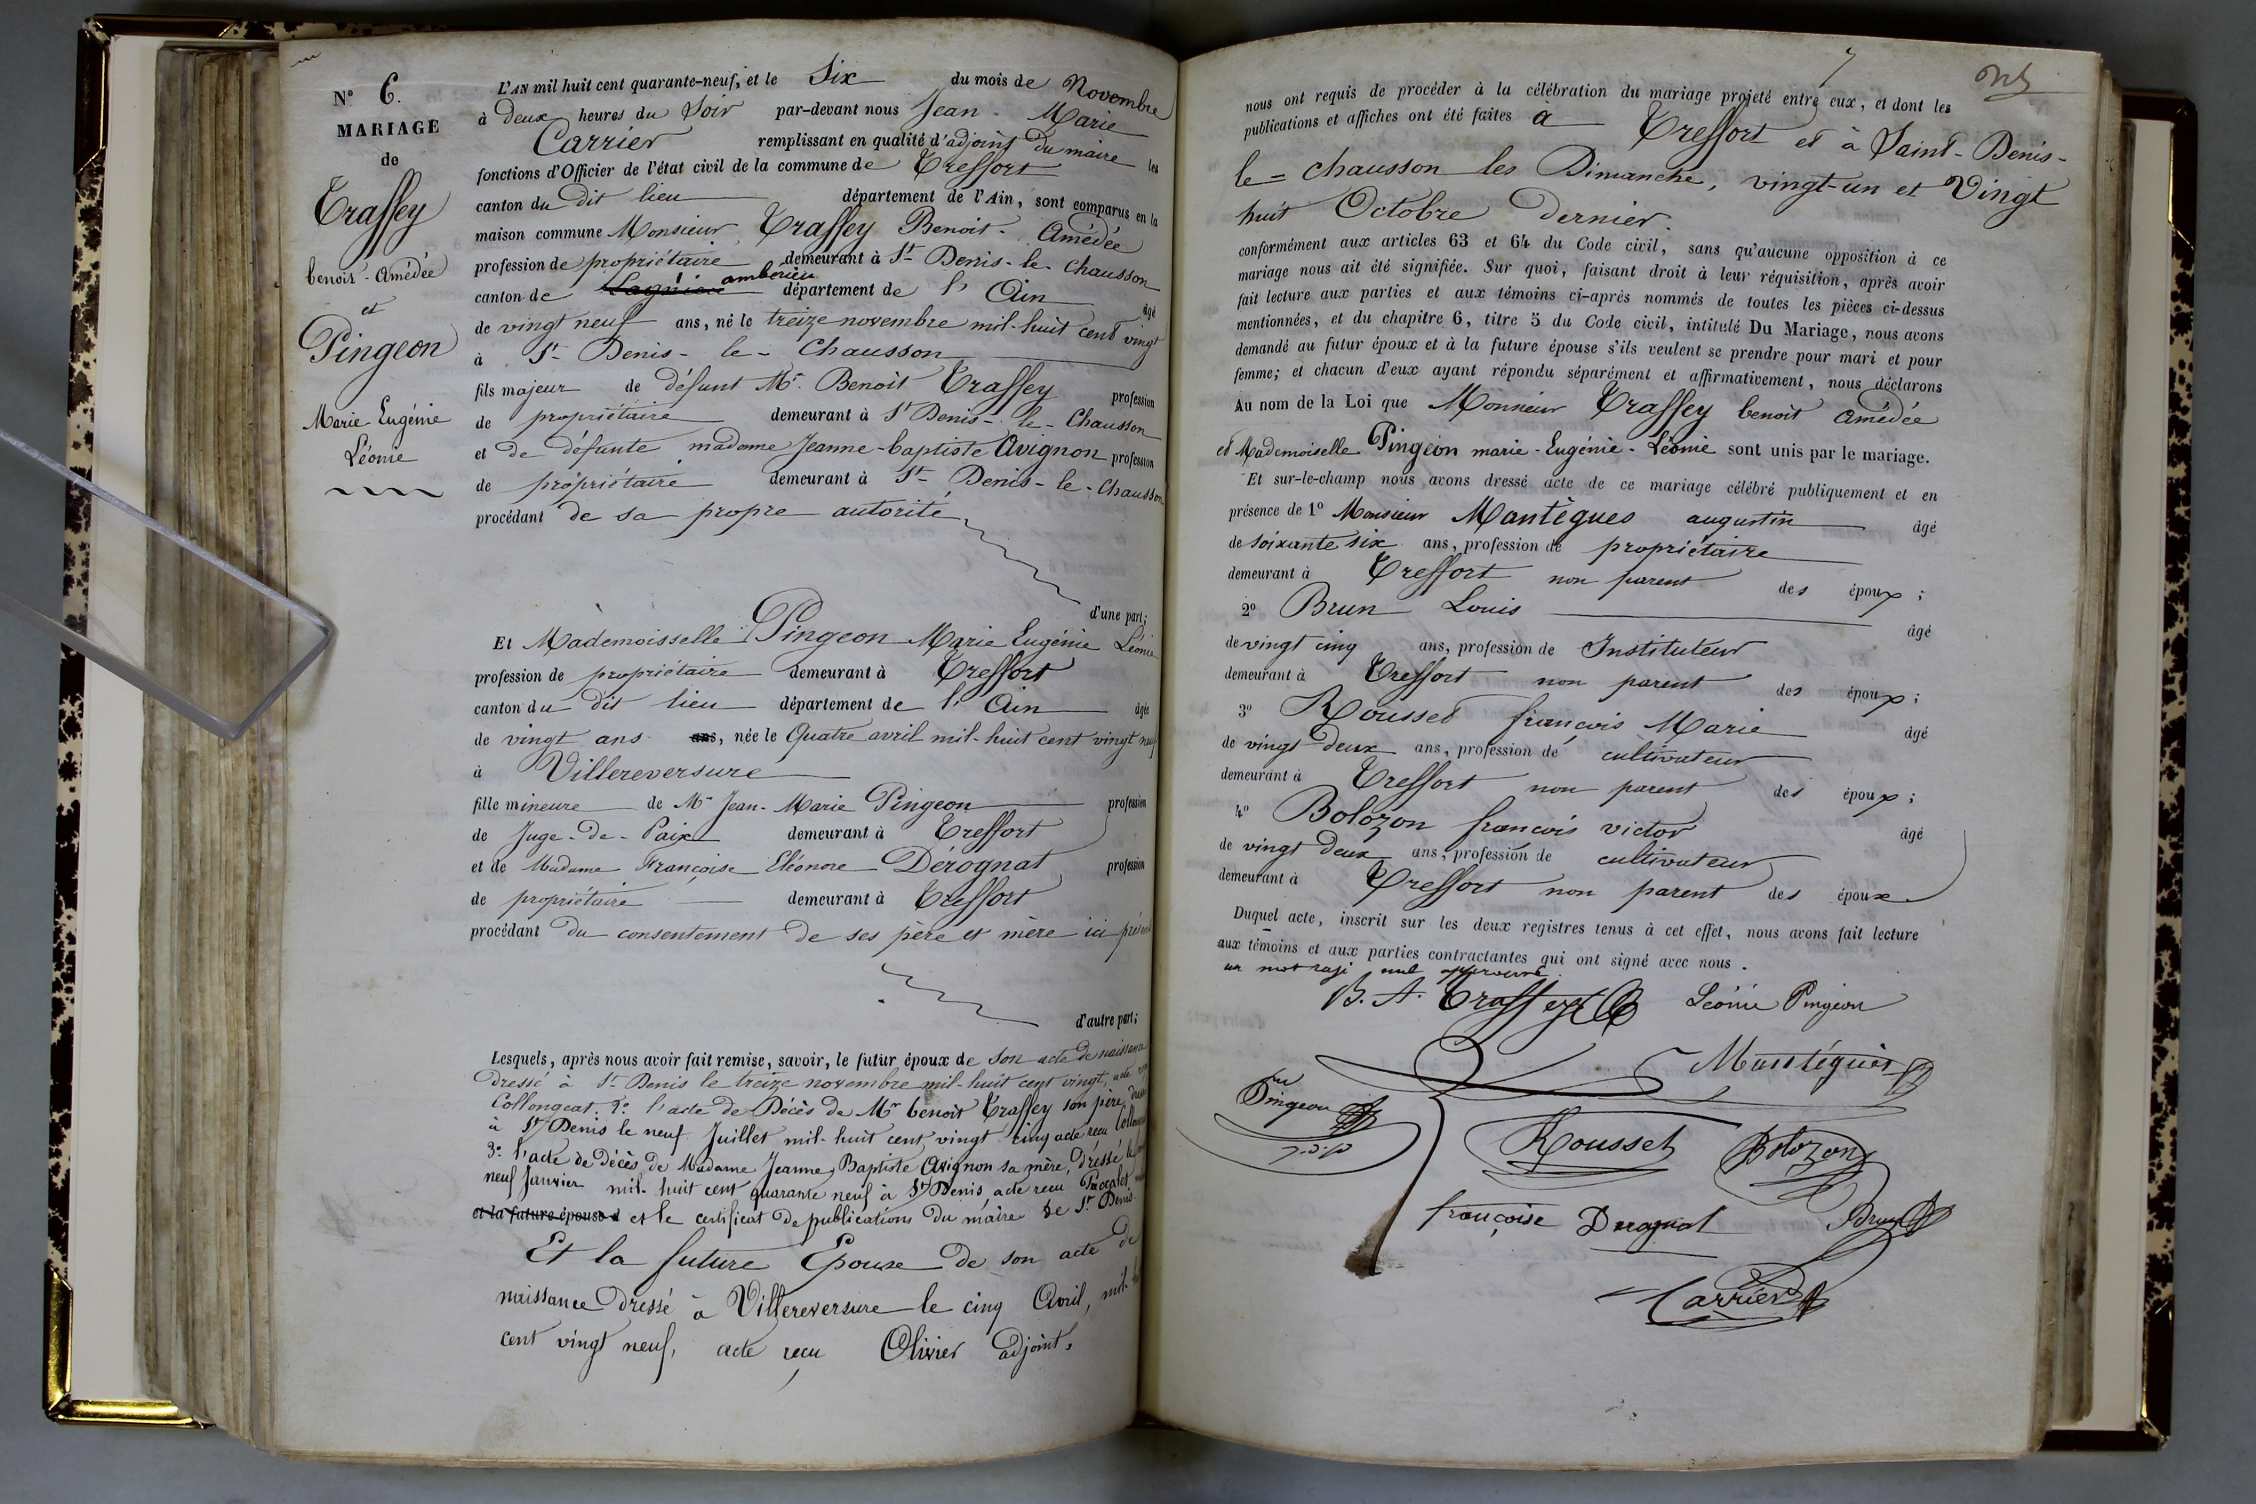 N° 6.
MARIAGE
de
Traffey
benoit - Amédée
et
Pingeon
Marie Eugénie
Léonie
L'AN mil huit cent quarante-neuf, et le Six du mois de Novembre
à deux heures du Soir par-devant nous Jean - Marie
Carrier remplissant en qualité d'adjoint du maire les
fonctions d'Officier de l'état civil de la commune de Treffort
canton du dit lieu département de l'Ain, sont comparus en la
maison commune Monsieur Traffey Benoit - Amédée
profession de propriétaire demeurant à St Denis-le-Chausson
canton de Lagnieu ambérieu département de l'Ain âgé
de vingt neuf ans, né le treize novembre mil-huit cent vingt
à St Denis - le - Chausson
fils majeur de défunt Mr. Benoit Traffey profession
de propriétaire demeurant à St Denis - le - Chausson
et de défunte madame Jeanne-baptiste Avignon profession
de propriétaire demeurant à St Denis - le - Chausson
procédant de sa propre autorité
d'une part;
Et Mademoisselle Pingeon Marie Eugénie Léonie
profession de propriétaire demeurant à Treffort
canton du dit lieu département de l'Ain âgée
de vingt ans ans, née le Quatre avril mil-huit cent vingt neuf
à Villereversure
fille mineure de Mr Jean-Marie Pingeon profession
de Juge-de-Paix demeurant à Treffort
et de Madame Françoise Eléonore Dérognat profession
de propriétaire demeurant à Treffort
procédant du consentement de ses père et mère ici
d'autre part;
Lesquels, après nous avoir fait remise, savoir, le futur époux de son acte de naissance
dressé à St Denis le treize novembre mil-huit cent vingt, acte
Collongeat. 2° l'acte de Décès de Mr benoit Traffey son père,
à St Denis le neuf Juillet mil-huit cent vingt cinq acte recu
3° l'acte de Décès de Madame Jeanne Baptiste Avignon sa mère, dressé le
neuf Janvier mil-huit cent quarante neuf à St Denis acte recu
et la future épouse d et le certificat de publications du maire de St Denis
Et la future Epouse de son acte de
naissance dressé à Villereversure le cinq Avril, mil-
cent vingt neuf, acte recu Olivier adjoint.
7
nous ont requis de procéder à la célébration du mariage projeté entre eux, et dont les
publications et affiches ont été faites à Treffort et à Saint-Denis-
le-chausson les Dimanche, vingt-un et Vingt
huit Octobre dernier.
conformément aux articles 63 et 64 du Code civil, sans qu'aucune opposition à ce
mariage nous ait été signifiée. Sur quoi, faisant droit à leur réquisition, après avoir
fait lecture aux parties et aux témoins ci-après nommés de toutes les pièces ci-dessus
mentionnées, et du chapitre 6, titre 5 du Code civil, intitulé Du Mariage, nous avons
demandé au futur époux et à la future épouse s'ils veulent se prendre pour mari et pour
femme; et chacun d'eux ayant répondu séparément et affirmativement, nous déclarons
Au nom de la Loi que Monsieur Traffey benoit Amédée
et Mademoiselle Pingeon marie-Eugénie-Léonie sont unis par le mariage.
Et sur-le-champ nous avons dressé acte de ce mariage célébré publiquement et en
présence de 1° Monsieur Mantègues augustin âgé
de soixante six ans, profession de propriétaire
demeurant à Treffort non parent des époux ;
2° Brun Louis âgé
de vingt cinq ans, profession de Instituteur
demeurant à Treffort non parent des époux ;
3° Rousset françois Marie âgé
de vingt deux ans, profession de cultivateur
demeurant à Treffort non parent des époux ;
4° Bolozon françois victor âgé
de vingt deux ans, profession de cultivateur
demeurant à Treffort non parent des époux
Duquel acte, inscrit sur les deux registres tenus à cet effet, nous avons fait lecture
aux témoins et aux parties contractantes qui ont signé avec nous.
un mot nul approuvé.
B. A. Traffey Léonie Pingeon
Mantéguès
Pingeon
Rousset Bolozon
françoise Derognat Brun
Carrier